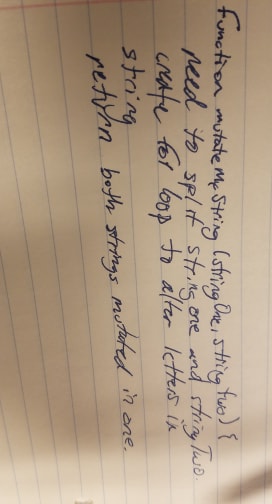 function mutateMyString (stringOne, string two) {
need to split string one and string Two.
create for loop to alter letters in
string
return both strings mutated in one.